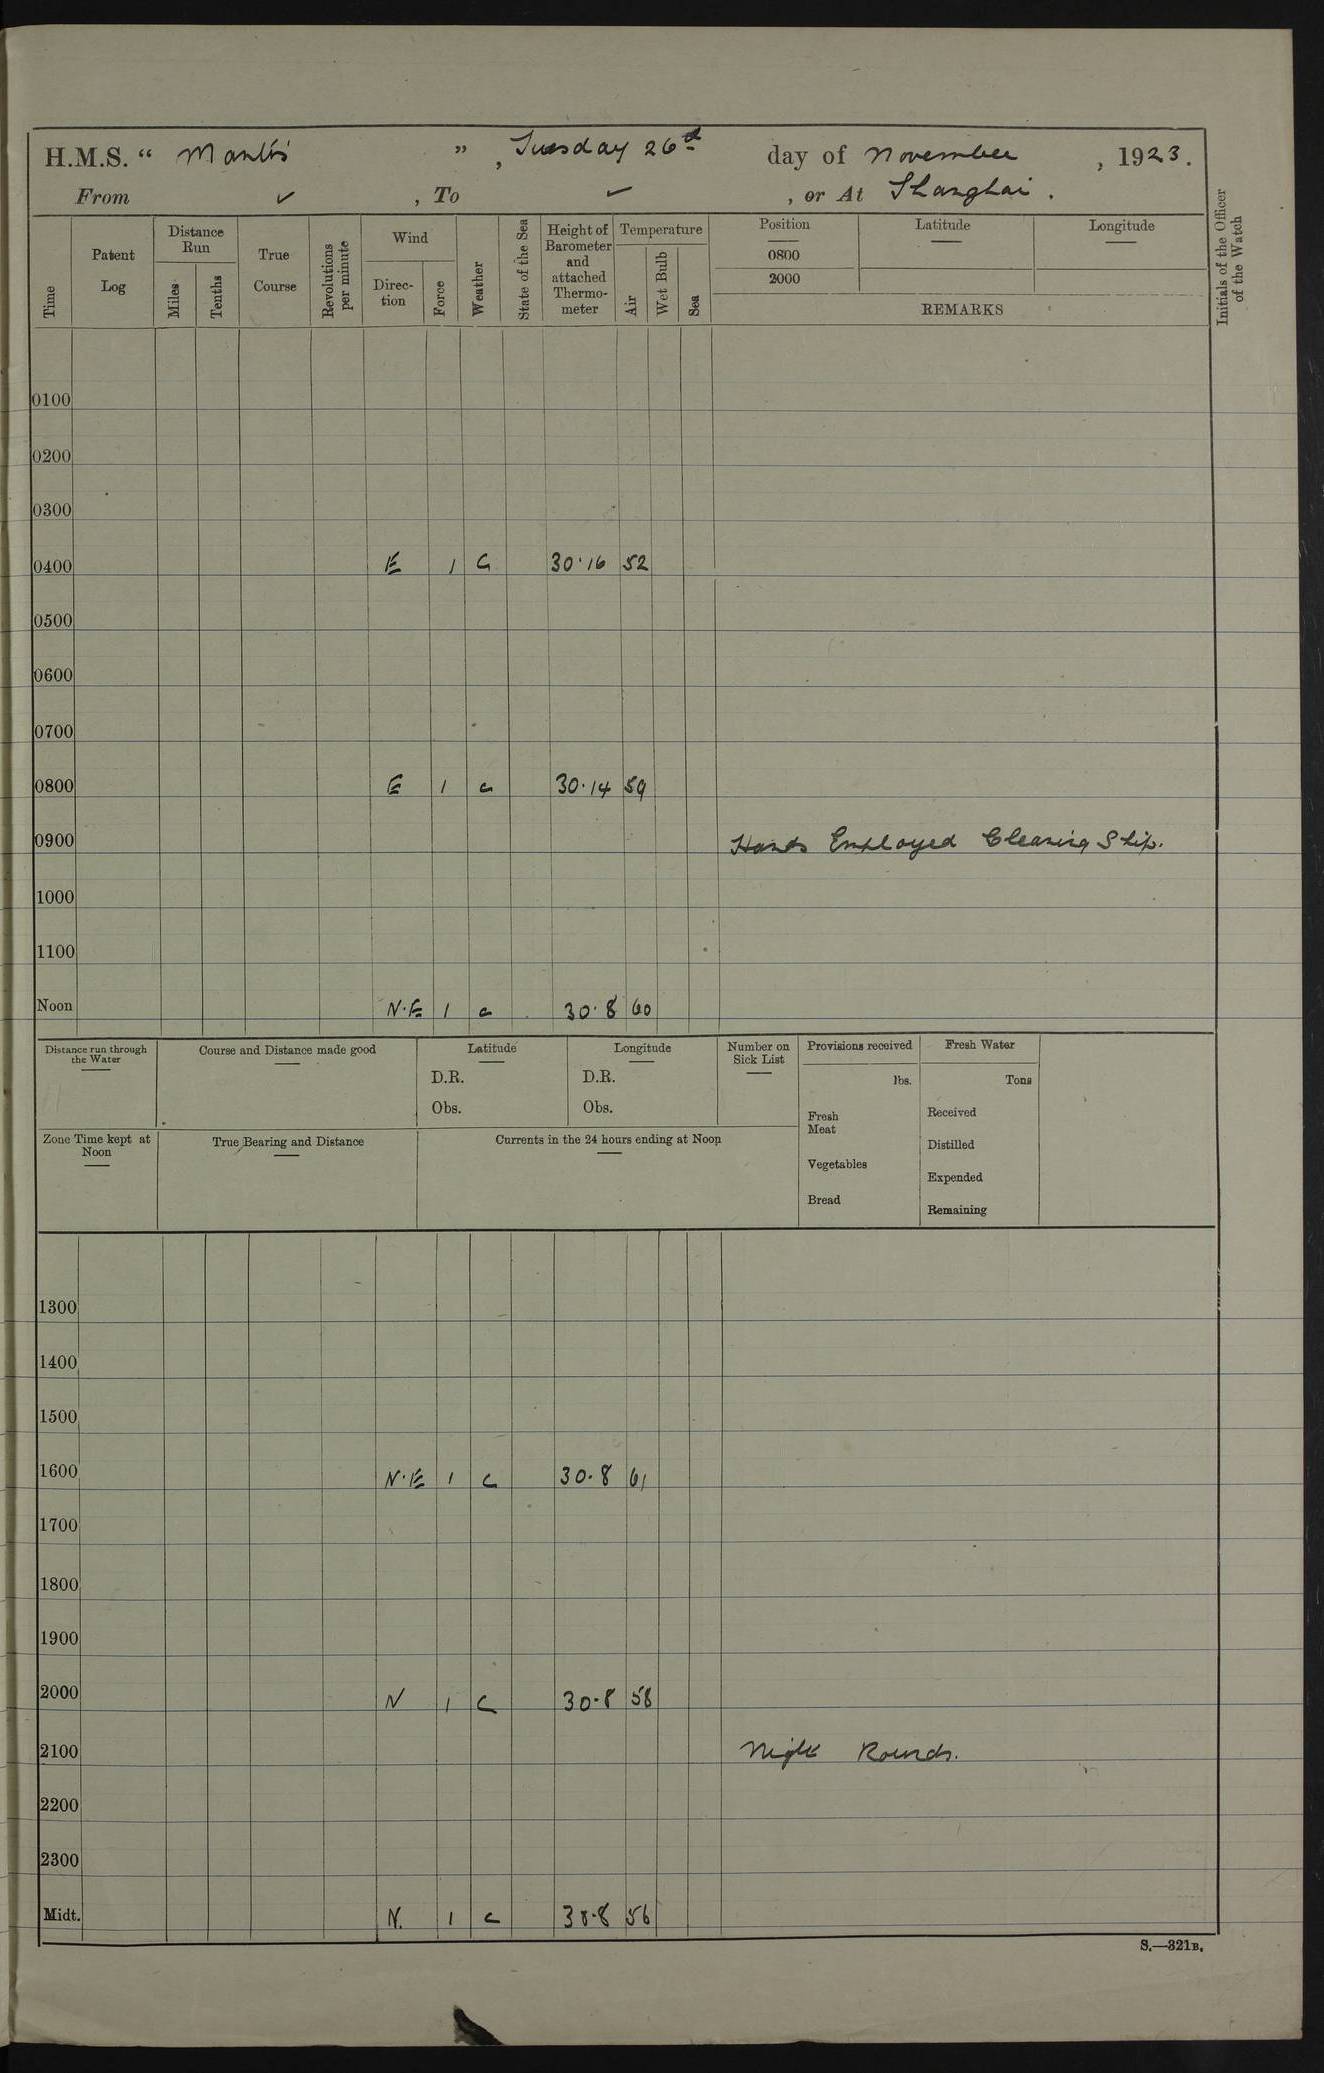 H.M.S. “ Mantis ”, Tuesday 26th day of November, 1923.
From ✓, To ✓, or At Shanghai.
Time
Patent Log
Distance Run
Miles
Tenths
True Course
Revolutions per minute
Wind
Direc-tion
Force
Weather
State of the Sea
Height of Barometer and attached Thermo-meter
Temperature
Air
Wet Bulb
Sea
Position
Latitude
Longitude
0800
2000
REMARKS
Initials of the Officer of the Watch
0100
0200
0300
0400 E 1 C 30.16 52
0500
0600
0700
0800 E 1 c 30.14 59
0900 Hands Employed Cleaning Ship.
1000
1100
Noon N.E 1 c 30.8 60
Distance run through the Water
Course and Distance made good
Latitude
D.R.
Obs.
Longitude
D.R.
Obs.
Number on Sick List
Provisions received
lbs.
Fresh Meat
Vegetables
Bread
Fresh Water
Tons
Received
Distilled
Expended
Remaining
Zone Time kept at Noon
True Bearing and Distance
Currents in the 24 hours ending at Noon
1300
1400
1500
1600 N.E 1 c 30.8 61
1700
1800
1900
2000 N 1 C 30.8 58
2100 Night Rounds.
2200
2300
Midt. N. 1 c 30.8 56
S.—321B.